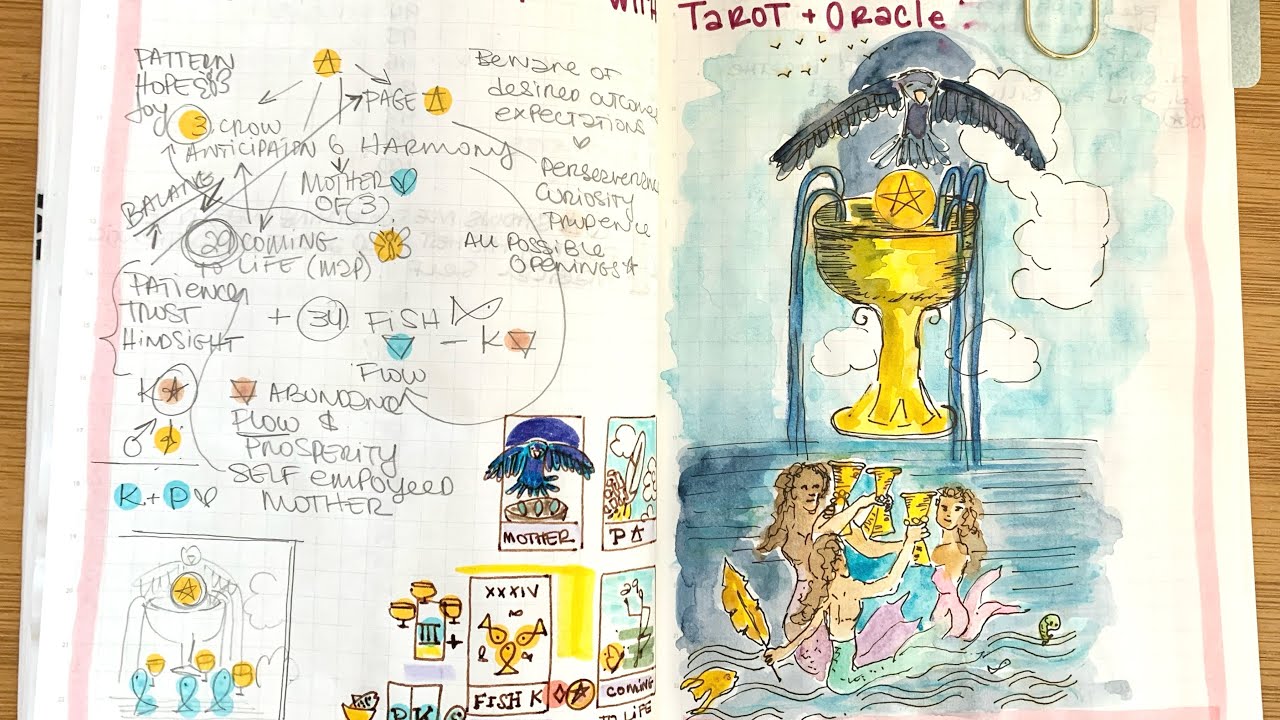 WITH
TAROT + ORACLE:
PATTERN
HOPES &
JOY
PAGE
3. CROW
ANTICIPATION 6 HARMONY
MOTHER
OF (3)
BALANCE
29 COMING
TO LIFE (M2P)
PATIENCE
TRUST
HINDSIGHT
+ 34. FISH
- K
FLOW
K
ABUNDENCE
FLOW &
PROSPERITY
SELF EMPLOYEED
MOTHER
K + P
Beware of
desired outcomes
expectations
PERSEVERENCE
CURIOSITY
PRUDENCE
ALL POSSIBLE
OPENINGS
MOTHER
P
III
+
XXXIV
FISH K
29
COMING
TO LIFE
PK